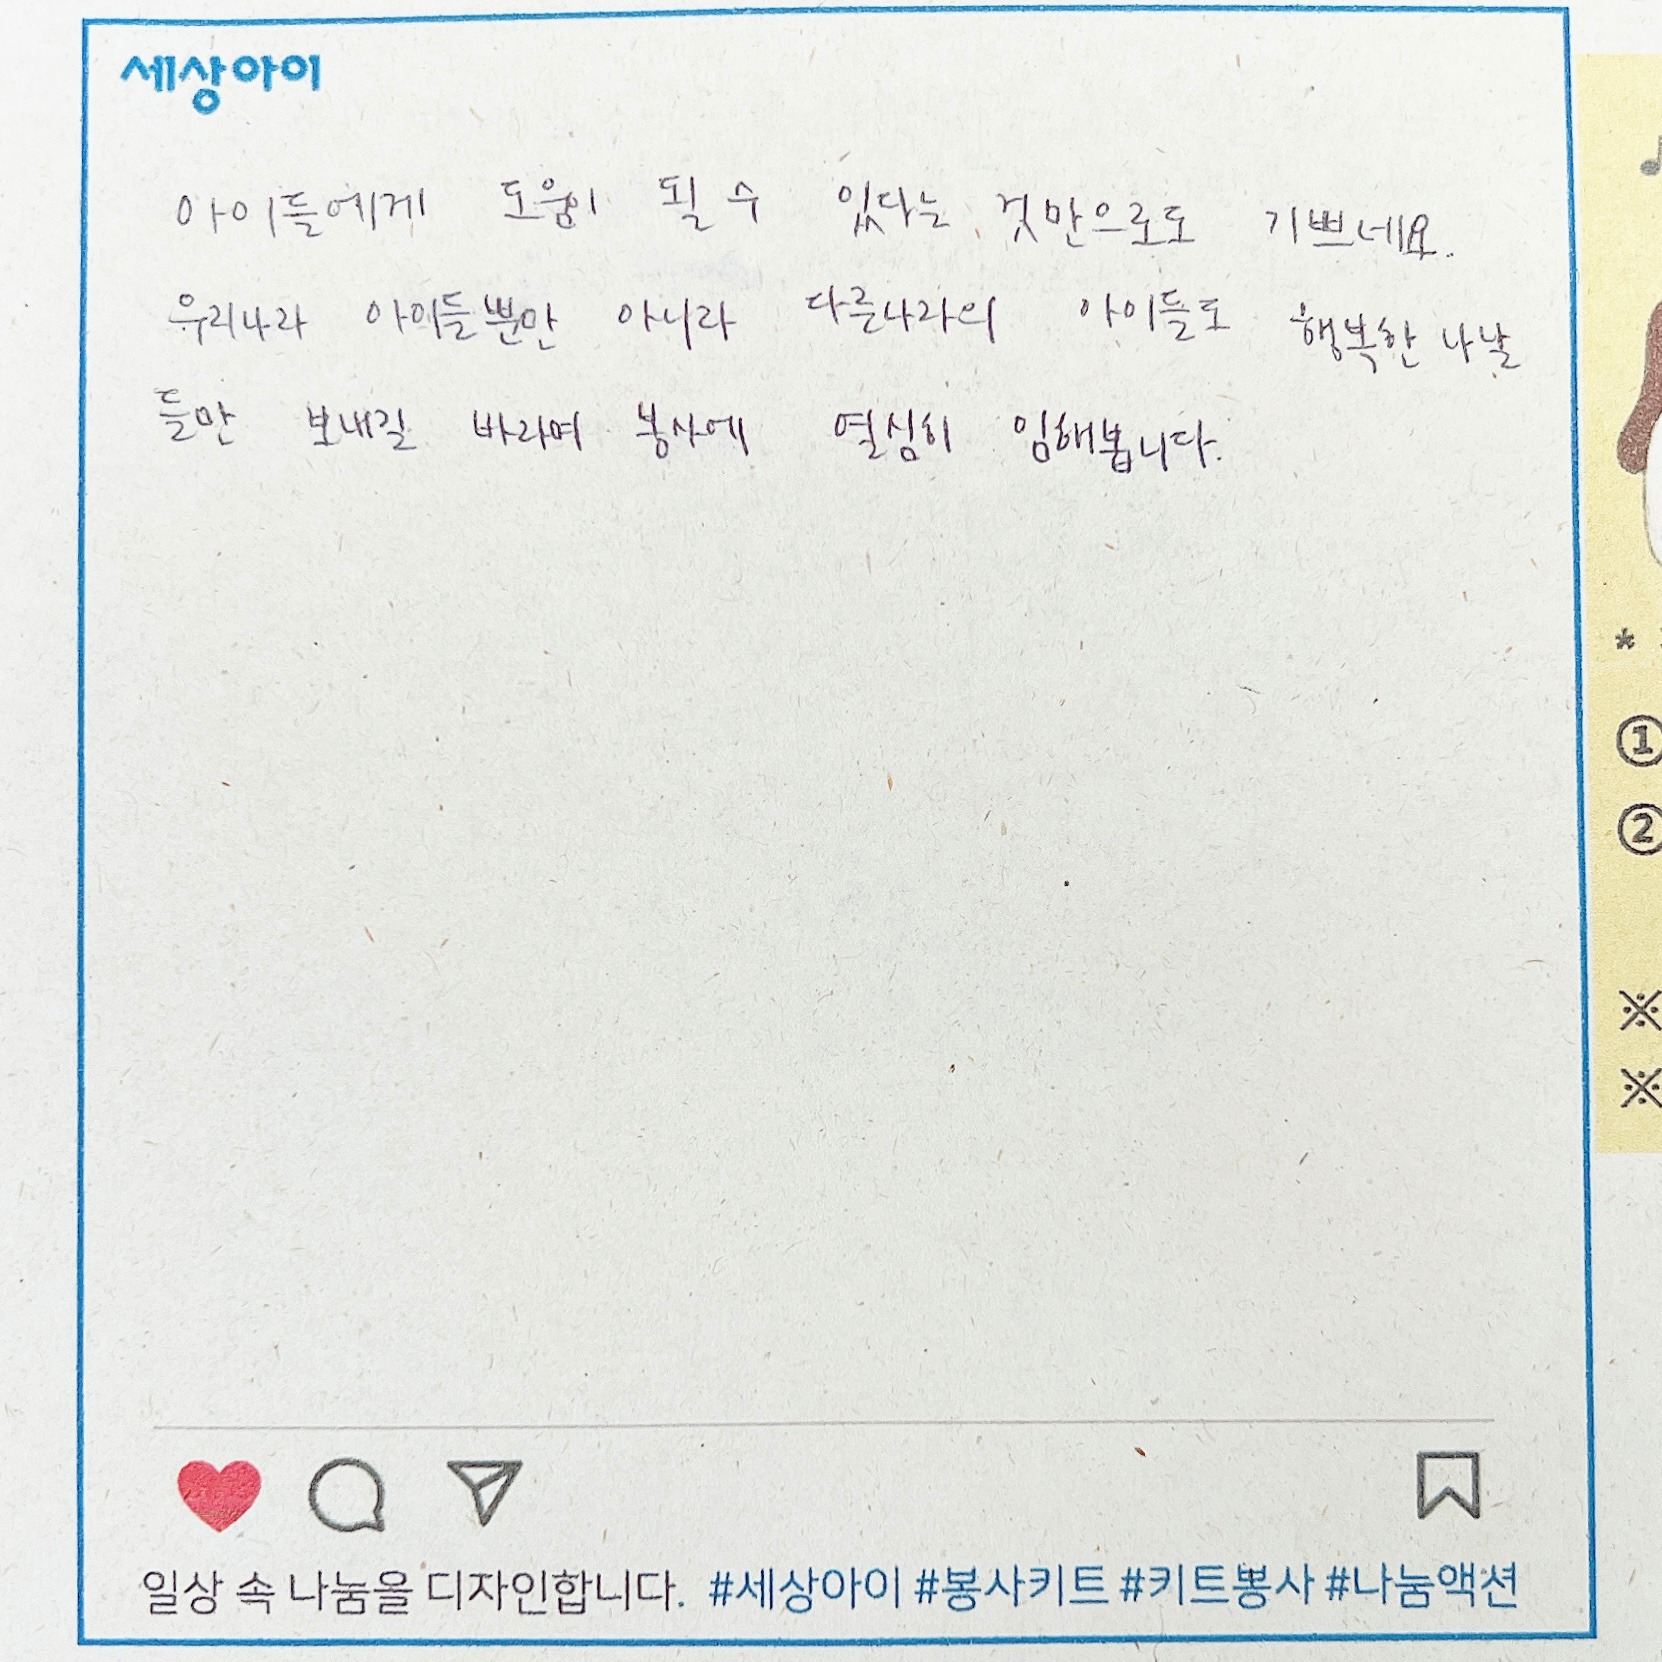 세상아이
아이들에게 도움이 될 수 있다는 것만으로도 기쁘네요.
우리나라 아이들뿐만 아니라 다른나라의 아이들도 행복한 나날
들만 보내길 바라며 봉사에 열심히 임해봅니다.
*
①
②
※
※
일상 속 나눔을 디자인합니다. #세상아이 #봉사키트 #키트뽕사 #나눔액션